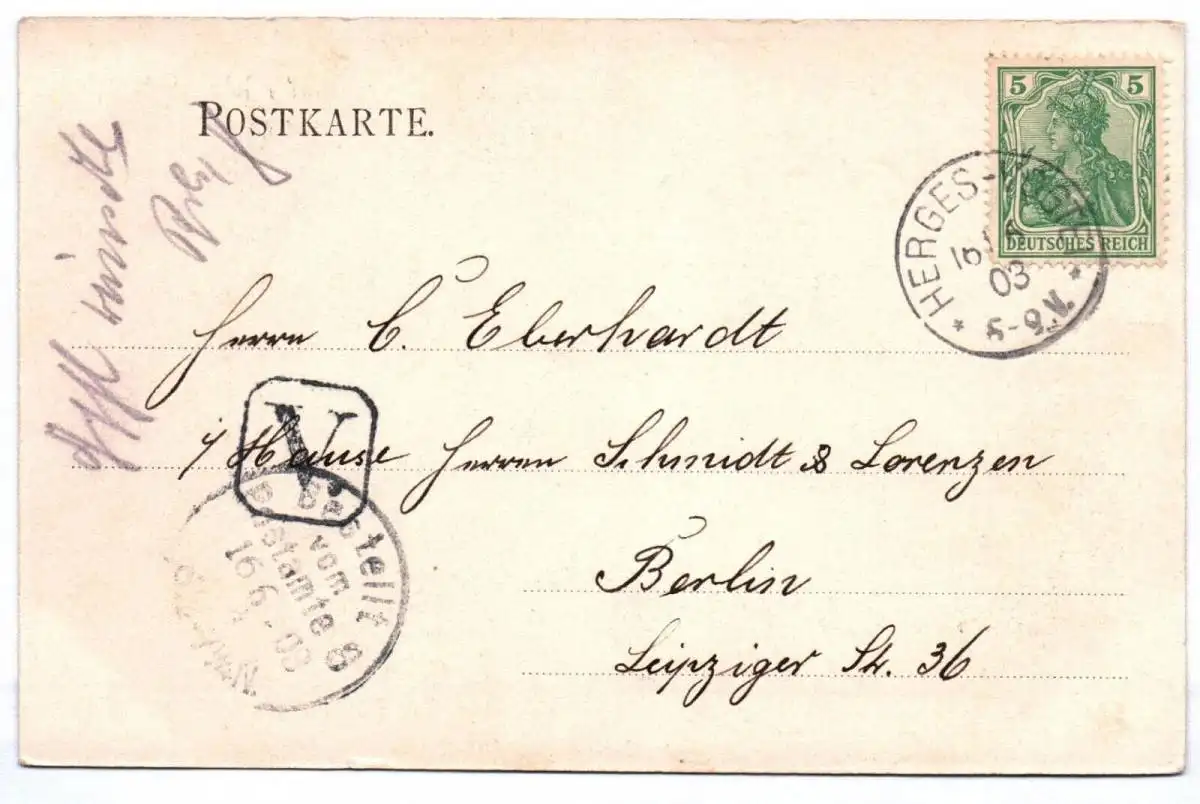 POSTKARTE.
5 5
DEUTSCHES REICH
* HERGES-VOGTEI *
16
03
8-9V.
Herrn C. Eberhardt
i/ Hause Herren Schmidt & Lorenzen
Berlin
Leipziger Str. 36
V.
Bestellt
vom
Postamte 8
16 6 03
Nchm